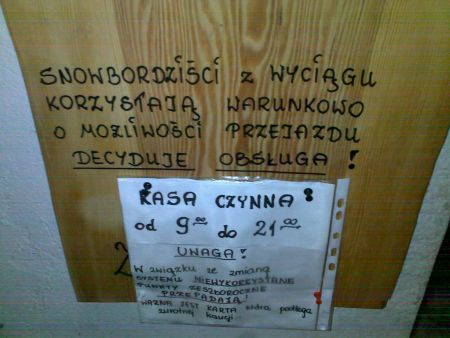 SNOWBORDZIŚCI Z WYCIĄGU
KORZYSTAJĄ WARUNKOWO
O MOŻLIWOŚCI PRZEJAZDU
DECYDUJE OBSŁUGA !
KASA CZYNNA
od 9⁰⁰ do 21⁰⁰
UWAGA !
W związku ze zmianą
SYSTEMU NIEWYKORZYSTANE
PUNKTY ZESZŁOROCZNE
PRZEPADAJĄ !
WAŻNA JEST KARTA która podlega
zwrotnej kaucji